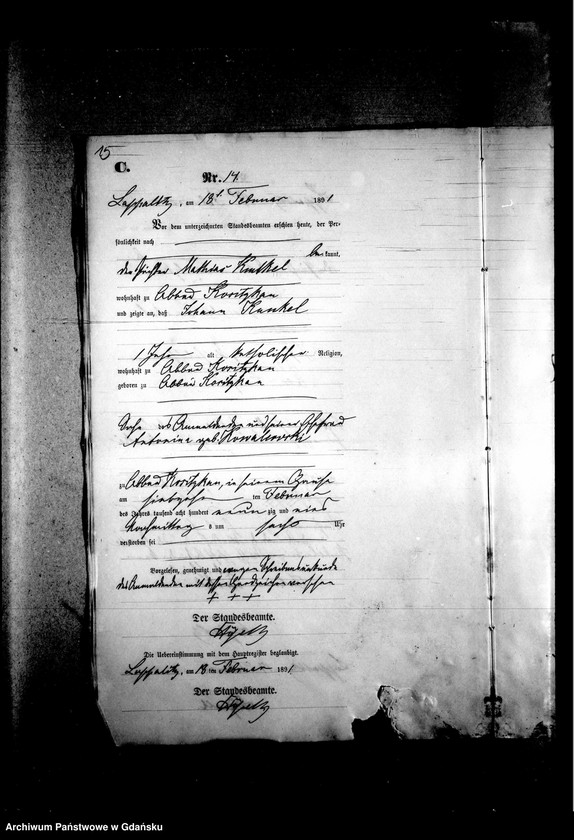 15
C.
Nr. 14.
am 18t. Februar 1891
Vor dem unterzeichneten Standesbeamten erschien heute, der Per-
sönlichkeit nach
be kannt,
den Mathias Kunkel
wohnhaft zu Abbau Koritzkau
und zeigte an, daß Johann Kunkel
1 Jahr alt katholischer Religion,
wohnhaft zu Abbau Koritzkau
geboren zu Abbau Koritzkau
Sohn des Anmeldenden und seiner Ehefrau
Antonina geb. Kowalewski
zu Abbau Koritzkau, in seinem Hause
am siebzehn ten Februar
des Jahres tausend acht hundert neun zig und eins
Nachmittag s um sechs Uhr
verstorben sei
Vorgelesen, genehmigt und wegen Schreibensunkunde
des Anmeldenden mit dessen Handzeichen versehen
+ + +
Der Standesbeamte.
Die Uebereinstimmung mit dem Hauptregister beglaubigt.
am 18 ten Februar 1891
Der Standesbeamte.
Archiwum Państwowe w Gdańsku